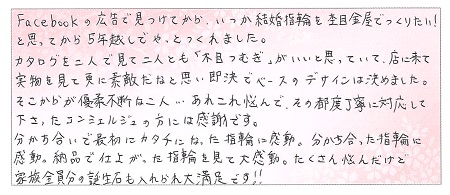 Facebookの広告で見つけてから、いつか結婚指輪を杢目金屋でつくりたい!
と思ってから5年越しでや、とつくれました。
カタログを二人で見て二人とも「木目つむぎ」がいいと思っていて、店に来て
実物を見て更に素敵だなと思い即決でベースのデザインは決めました。
そこからが優柔不断な二人…あれこれ悩んで、その都度丁寧に対応して
下さったコンシェルジュの方には感謝です。
分かち合いで最初にカタチになった指輪に感動。分かち合った指輪に
感動。納品で仕上がった指輪を見て大感動。たくさん悩んだけど
家族全員分の誕生石も入れられ大満足です!!